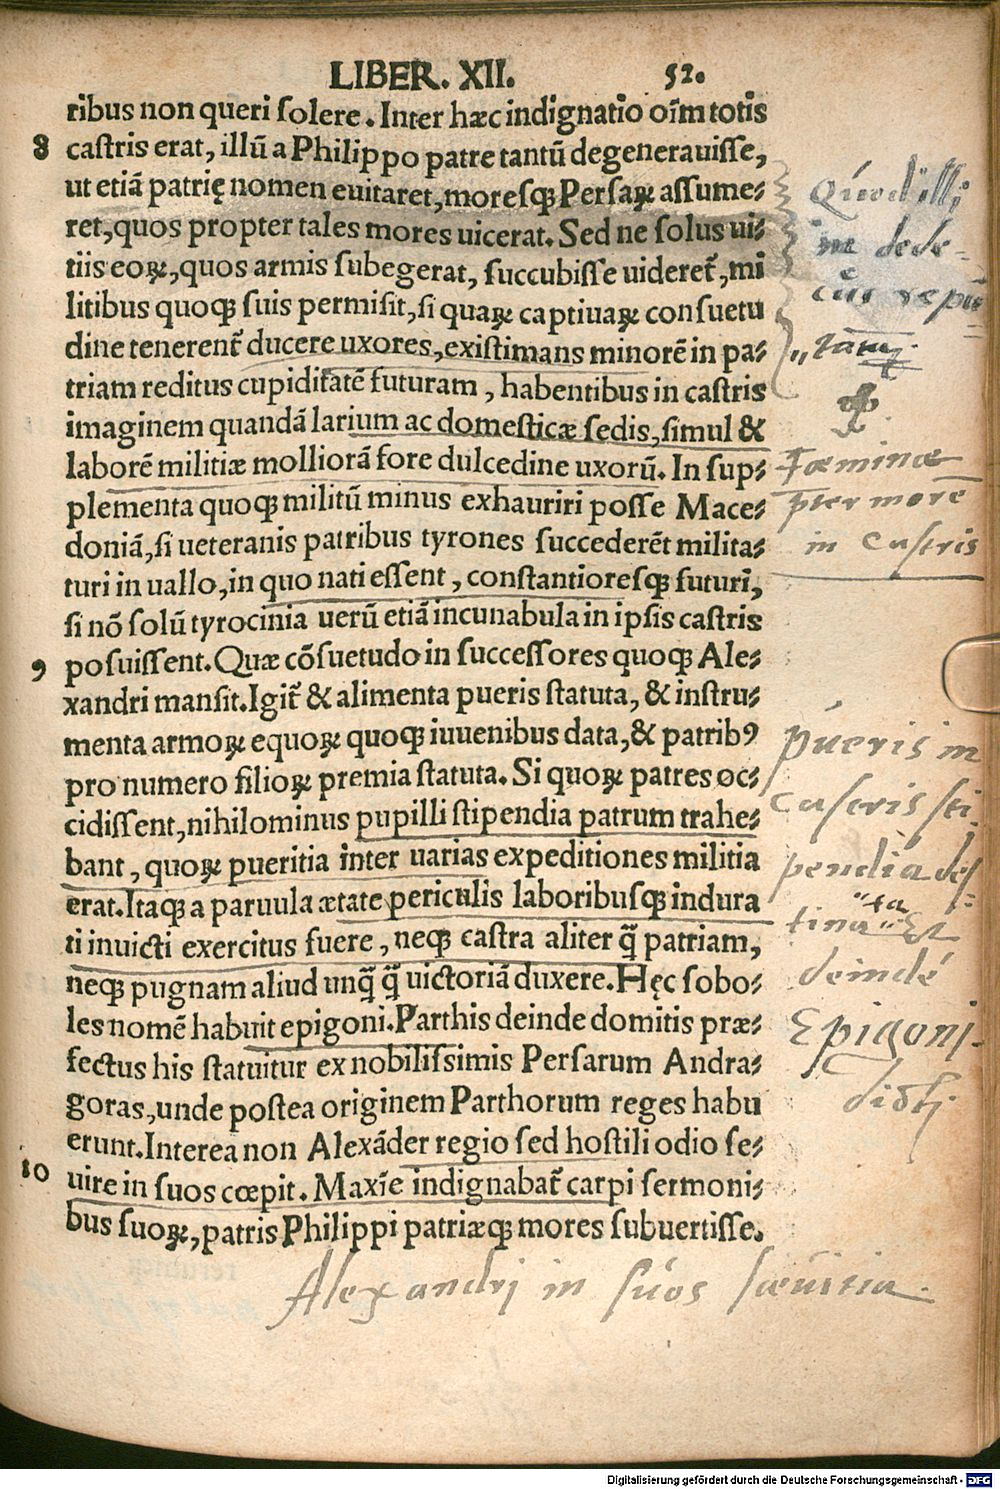 LIBER. XII. 52.
ribus non queri solere. Inter hæc indignatio oīm totis
8 castris erat, illū a Philippo patre tantū degenerauisse,
ut etiā patrię nomen euitaret, moresqꝫ Persaꝝ assume-
ret, quos propter tales mores uicerat. Sed ne solus ui-
tiis eoꝝ, quos armis subegerat, succubisse uideret᷑, mi
litibus quoqꝫ suis permisit, si quaꝝ captiuaꝝ consuetu
dine tenerent᷑ ducere uxores, existimans minorē in pa-
triam reditus cupiditatē futuram, habentibus in castris
imaginem quandā larium ac domesticæ sedis, simul &
laborē militiæ molliorā fore dulcedine uxorū. In sup-
plementa quoqꝫ militū minus exhauriri posse Mace-
doniā, si ueteranis patribus tyrones succederēt milita-
turi in uallo, in quo nati essent, constantioresqꝫ futuri,
si nō solū tyrocinia uerū etiā incunabula in ipsis castris
9 posuissent. Quæ cōsuetudo in successores quoqꝫ Ale-
xandri mansit. Igit᷑ & alimenta pueris statuta, & instru-
menta armoꝝ equoꝝ quoqꝫ iuuenibus data, & patribꝰ
pro numero filioꝝ premia statuta. Si quoꝝ patres oc-
cidissent, nihilominus pupilli stipendia patrum trahe-
bant, quoꝝ pueritia inter uarias expeditiones militia
erat. Itaqꝫ a paruula ætate periculis laboribusqꝫ indura
ti inuicti exercitus fuere, neqꝫ castra aliter q̄ patriam,
neqꝫ pugnam aliud unq̄ q̄ uictoriā duxere. Hęc sobo-
les nomē habuit epigoni. Parthis deinde domitis præ-
fectus his statuitur ex nobilissimis Persarum Andra-
goras, unde postea originem Parthorum reges habu
erunt. Interea non Alexāder regio sed hostili odio se-
10 uire in suos cœpit. Maxīe indignabat᷑ carpi sermoni-
bus suoꝝ, patris Philippi patriæqꝫ mores subuertisse.
Quod illi
in dede-
cus repu
tatum
Fœminæ
pter morē
in Castris
pueris in
Castris sti
pendia des
tinata Et
deindé
Epigonj.
dictj.
Alexandri in suos sæuitia.